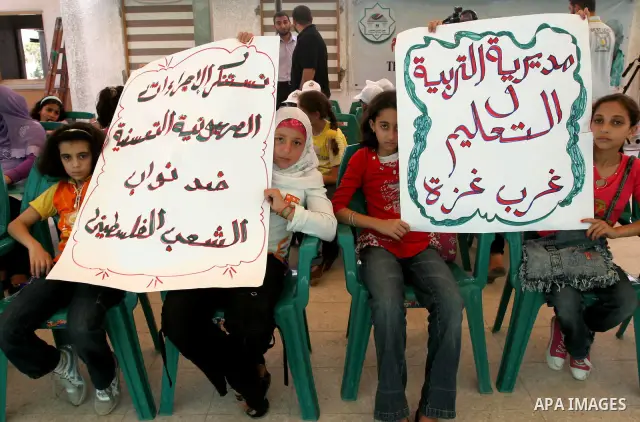 نستنكر الإجراءات
الصهيونية التعسفية
ضد نواب
الشعب الفلسطيني
مديرية التربية
و التعليم
غرب غزة
APA IMAGES